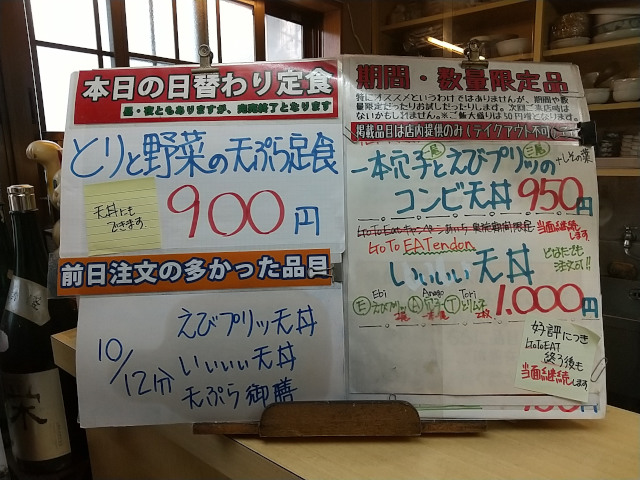 本日の日替わり定食
昼・夜ともありますが、完売終了となります
とりと野菜の天ぷら定食
天丼にも
できます
900円
前日注文の多かった品目
10/12分
えびプリッ天丼
いいぃぃ天丼
天ぷら御膳
期間・数量限定品
特にオススメというわけではありませんが、期間や数
量限定だったりお試しだったりします。次回ご来店時は
ないかもしれません。※ご飯大盛りは50円増となります。
掲載品目は店内提供のみ(テイクアウト不可)
一本穴子とえびプリッの
一尾 三尾 +しその葉
コンビ天丼 950円
当面継続
します
GoTo EATendon
いいぃぃ天丼
どなたでも
注文可!!
Ebi Anago Tori
E えびプリッ A 穴子 T とり
1,000円
好評につき
GoToEAT
終了後も
当面継続します